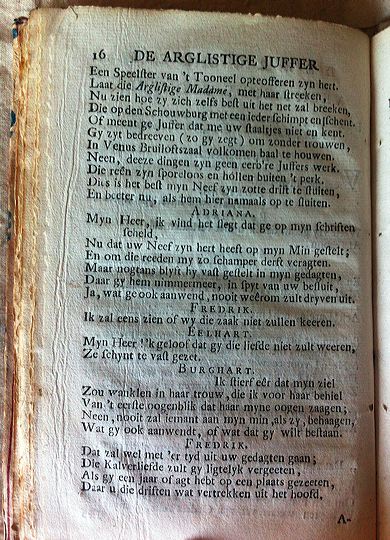 16 DE ARGLISTIGE JUFFER
Een Speelster van 't Tooneel opteofferen zyn hert.
Laat die Arglistige Madame, met haar streeken,
Nu zien hoe zy zich zelfs best uit het net zal breeken,
Die op den Schouwburg met een ieder schimpt en schent.
Of meent ge Juffer dat me uw staaltjes niet en kent.
Gy zyt bedreeven (zo gy zegt) om zonder trouwen,
In Venus Bruiloftszaal volkomen baal te houwen.
Neen, deeze dingen zyn geen eerb're Juffers werk.
Die reên zyn sporeloos en hollen buiten 't perk.
Dit is het best myn Neef zyn zotte drift te stuiten,
En beeter nu, als hem hier namaals op te sluiten.
ADRIANA.
Myn Heer, ik vind het slegt dat ge op myn schriften
scheld,
Nu dat uw Neef zyn hert heeft op myn Min gestelt;
En om die reeden my zo schamper derft veragten.
Maar nogtans blyft hy vast gestelt in myn gedagten,
Daar gy hem nimmermeer, in spyt van uw besluit,
Ja, wat ge ook aanwend, nooit weêrom zult dryven uit.
FREDRIK.
Ik zal eens zien of wy die zaak niet zullen keeren.
EELHART.
Myn Heer! 'k geloof dat gy die liefde niet zult weeren,
Ze schynt te vast gezet.
BURGHART.
Ik stierf eêr dat myn ziel
Zou wanklen in haar trouw, die ik voor haar behiel
Van 't eerste oogenblik dat haar myne oogen zaagen;
Neen, nooit zal iemant aan myn min, als zy, behaagen,
Wat gy ook aanwendt, of wat dat gy wilt bestaan.
FREDRIK.
Dat zal wel met 'er tyd uit uw gedagten gaan;
Die Kalverliefde zult gy ligtelyk vergeeten,
Als gy een jaar of agt hebt op een plaats gezeeten,
Daar u die driften wat vertrekken uit het hoofd.
A-